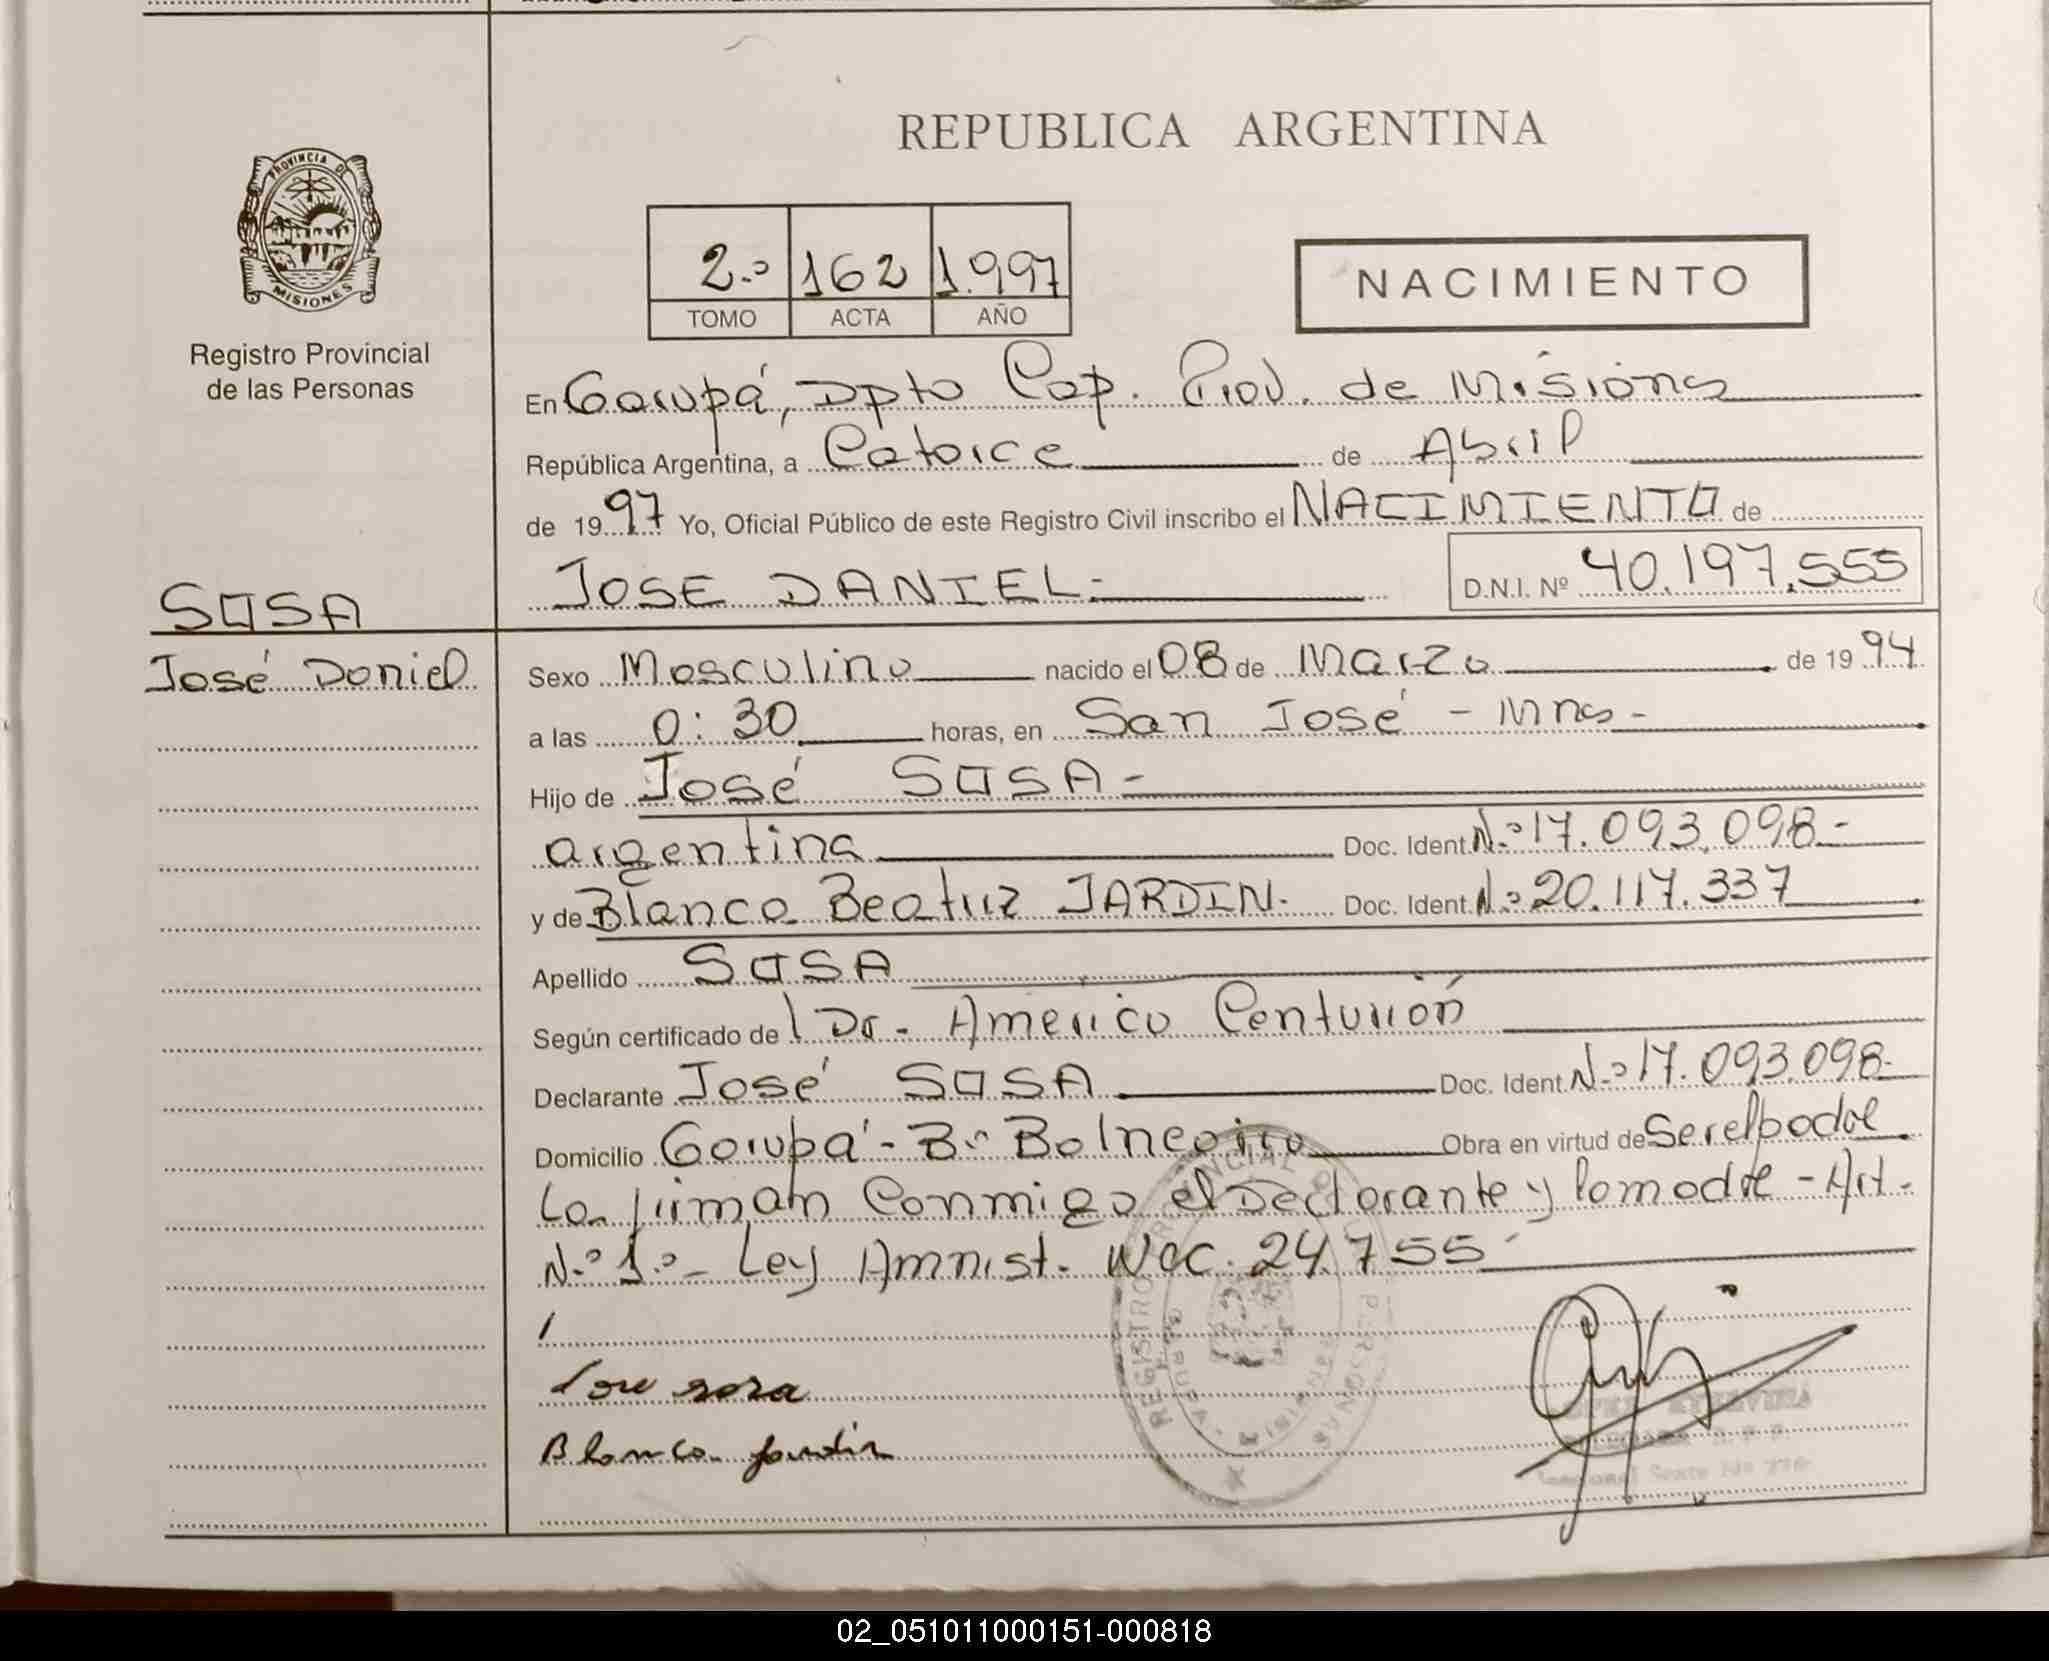 REPUBLICA ARGENTINA
PROVINCIA DE
MISIONES
Registro Provincial
de las Personas
2.º 162 1.997
TOMO ACTA AÑO
NACIMIENTO
En Garupá, Dpto Cap. Prov. de Misiones
República Argentina, a Catorce de Abril
de 1997 Yo, Oficial Público de este Registro Civil inscribo el NACIMIENTO de
JOSE DANIEL.- D.N.I. Nº 40.197.555
SOSA
José Daniel
Sexo Masculino nacido el 08 de Marzo de 1994
a las 0:30 horas, en San José - Mnes -
Hijo de José SOSA -
argentina Doc. Ident. N.º 17.093.098-
y de Blanca Beatriz JARDIN. Doc. Ident. N.º 20.117.337
Apellido SOSA
Según certificado de 1 Dr. Americo Centurión
Declarante José SOSA Doc. Ident. N.º 17.093.098-
Domicilio Garupá - Bº Balneario Obra en virtud de Ser el padre
La firman Conmigo el Declarante y la madre - Art.
N.º 1.º - Ley Amnist. Nac. 24.755
Jose sosa
Blanca Jardin
REGISTRO PROVINCIAL DE LAS PERSONAS
GARUPA
MISIONES
02_051011000151-000818